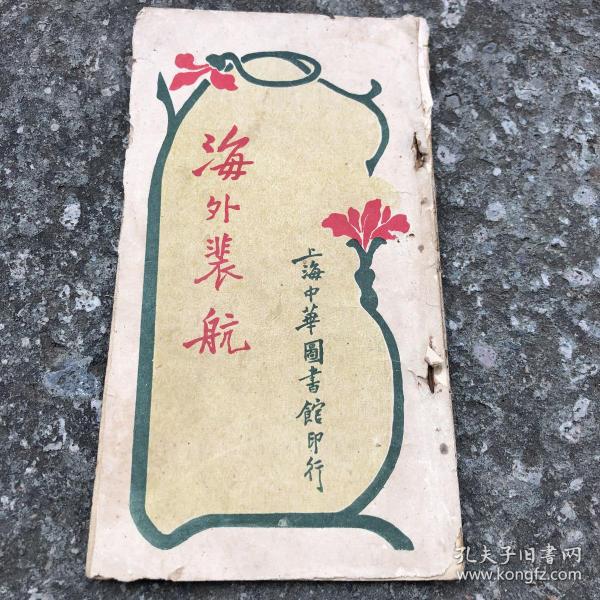 海外裴航
上海中華圖書館印行
孔夫子旧書网
www.kongfz.com